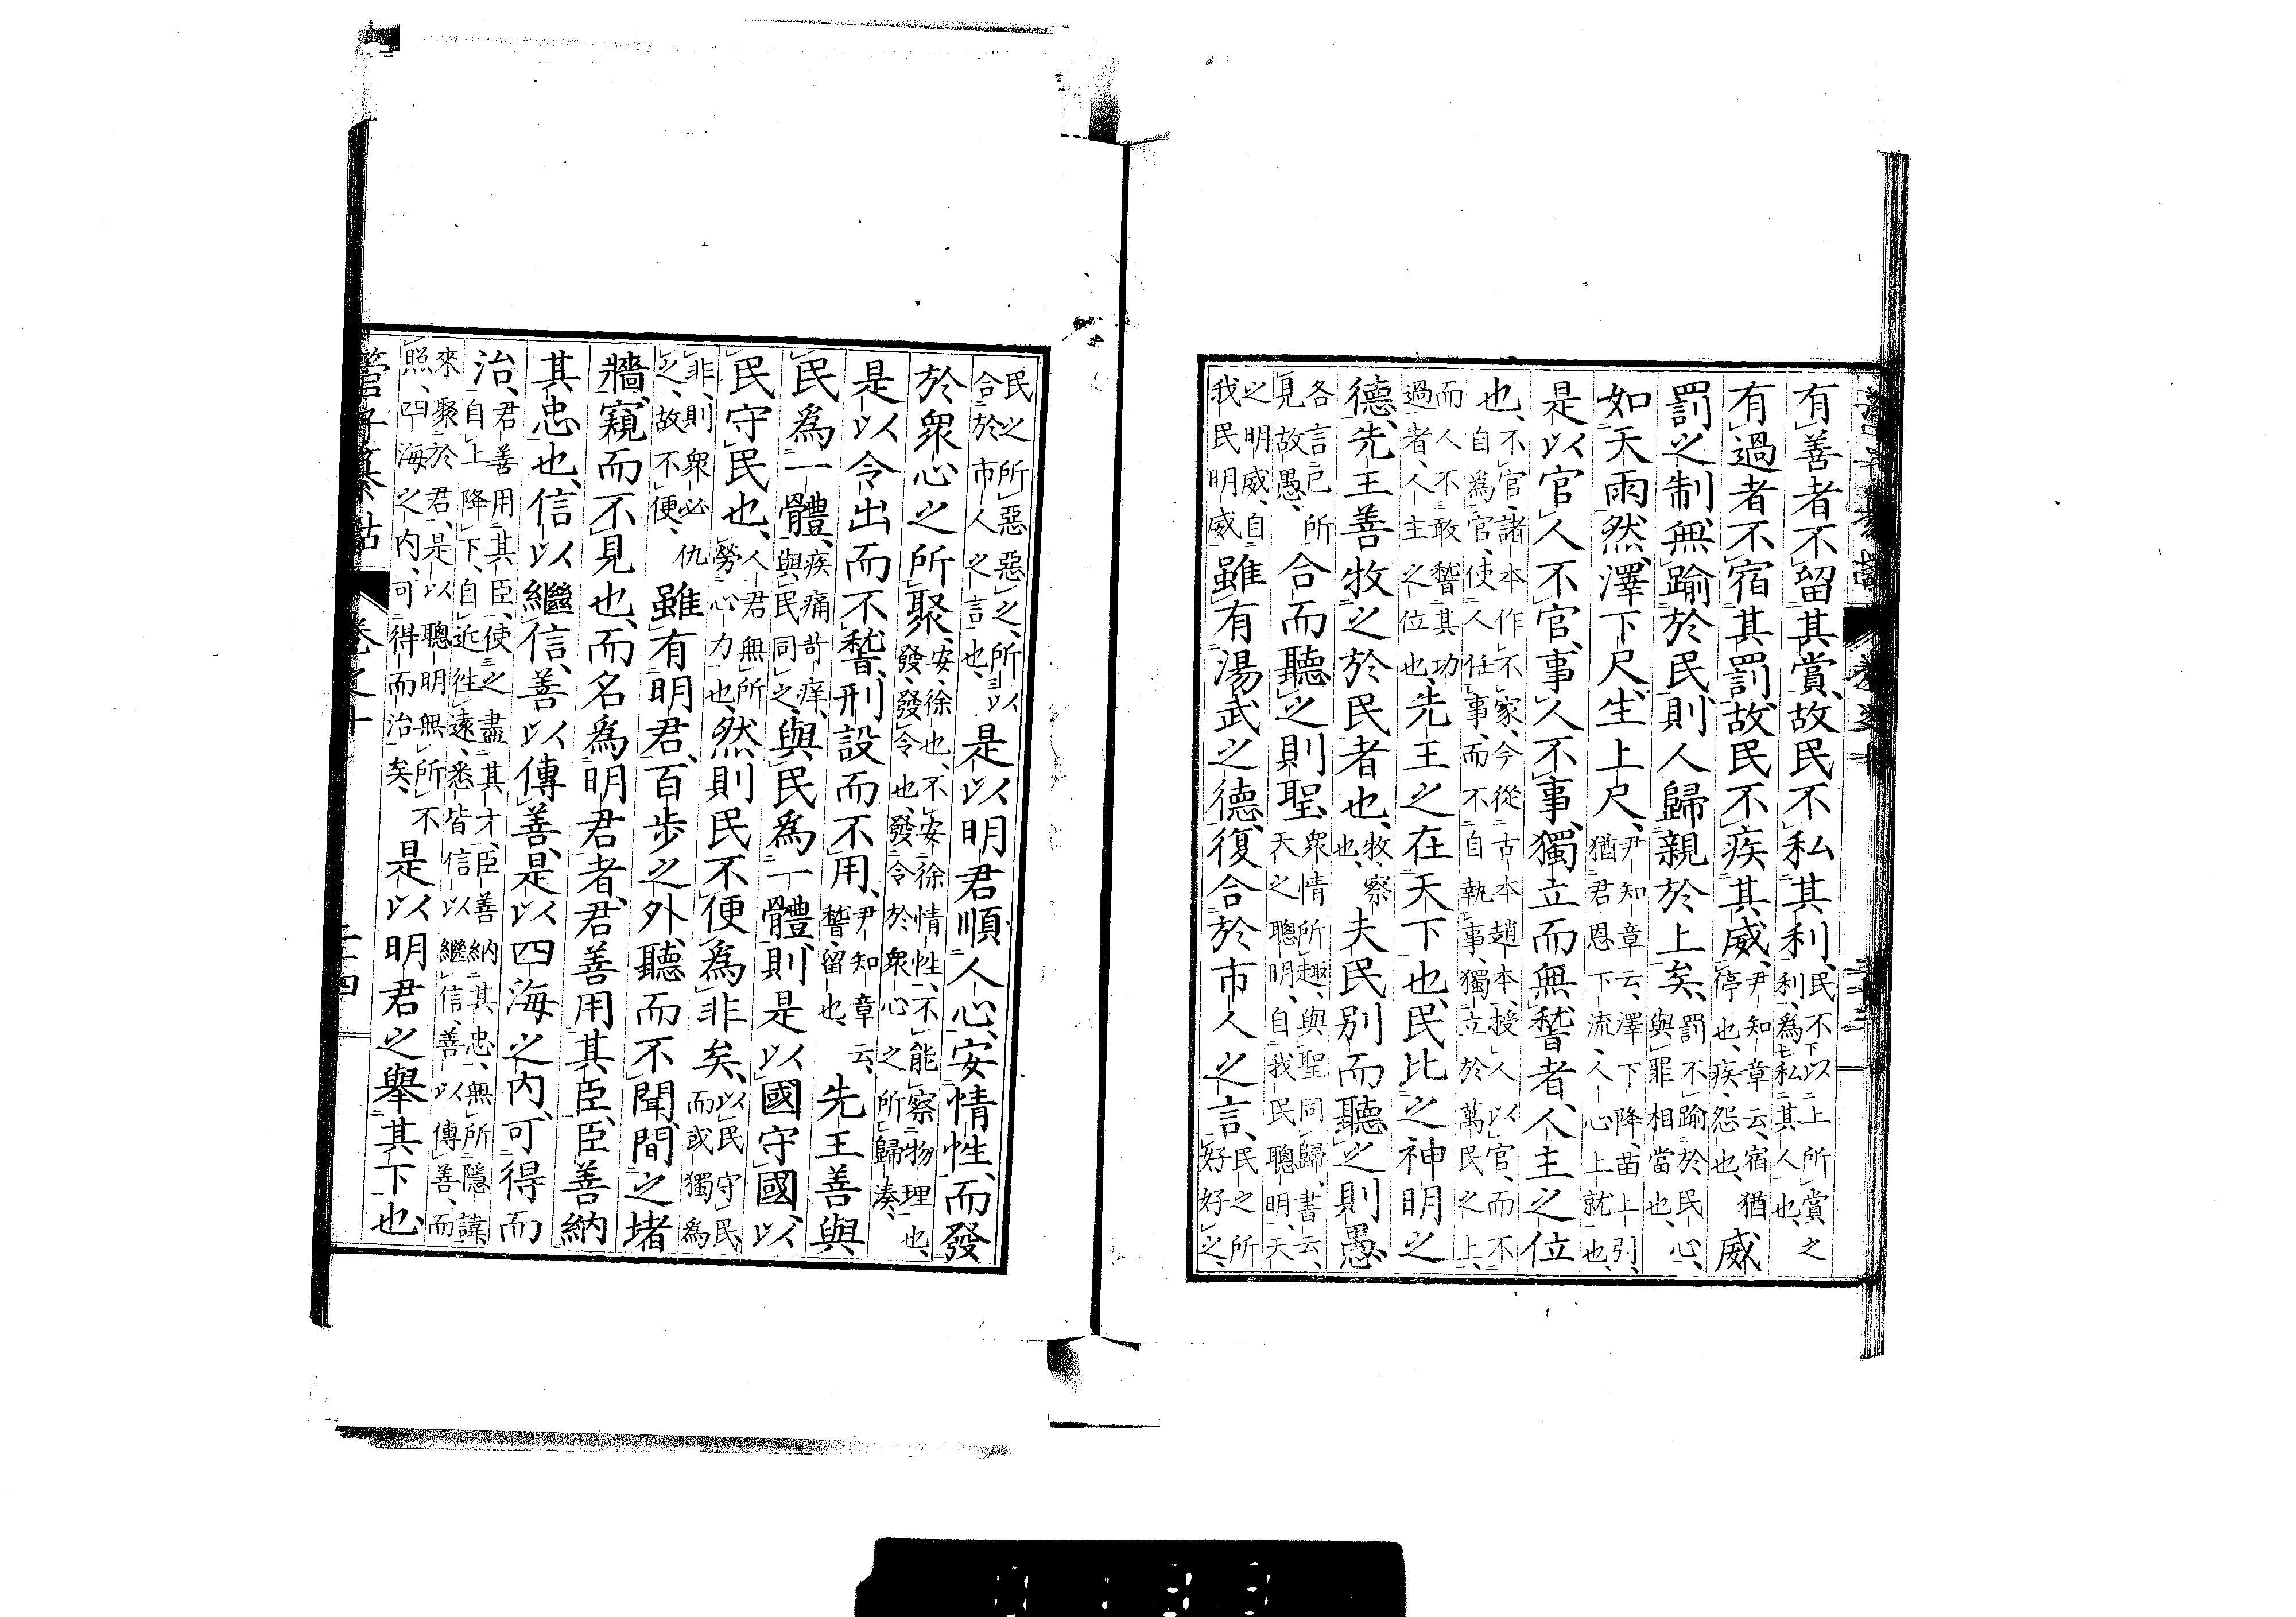 有善者不留其賞、故民不私其利、民不以上所賞之利、爲私其人也、
有過者不宿其罰、故民不疾其威、尹知章云、宿猶停也、疾、怨也、威
罰之制、無踰於民、則人歸親於上矣、罰不踰於民心、與罪相當也、
如天雨然、澤下尺、生上尺、尹知章云、澤下降苗上引、猶君恩下流人心上就也、
是以官人不官、事人不事、獨立而無稽者、人主之位
也、不官、諸本作不家、今從古本趙本、授人以官、而不自爲官、使人任事、而不自執事、獨立於萬民之上、
而人不敢稽其功過者、人主之位也、先王之在天下也、民比之神明之
德、先王善牧之於民者也、牧、察也、夫民別而聽之則愚、
各言己所見、故愚、合而聽之則聖、衆情所趣、與聖同歸、書云、天之聰明、自我民聰明、天
之明威、自我民明威、雖有湯武之德、復合於市人之言、民之所好好之、
民之所惡惡之、所以合於市人之言也、是以明君順人心、安情性、而發
於衆心之所聚、安、徐也、不安徐情性、不能察物理也、發、發令也、發令於衆心之所歸湊、
是以令出而不稽、刑設而不用、尹知章云、稽、留也、先王善與
民爲一體、疾痛苛痒、與民同之、與民爲一體、則是以國守國、以
民守民也、人君無所勞心力也、然則民不便爲非矣、以民守民、而或獨爲
非、則衆必仇之、故不便、雖有明君、百步之外、聽而不聞、間之堵
牆、窺而不見也、而名爲明君者、君善用其臣、臣善納
其忠也、信以繼信、善以傳善、是以四海之內、可得而
治、君善用其臣、使之盡其才、臣善納其忠、無所隱諱、自上降下、自近徃遠、悉皆信以繼信、善以傳善、而
來聚於君、是以聰明無所不照、四海之內、可得而治矣、是以明君之舉其下也、
管子纂詁 卷之十 二十四